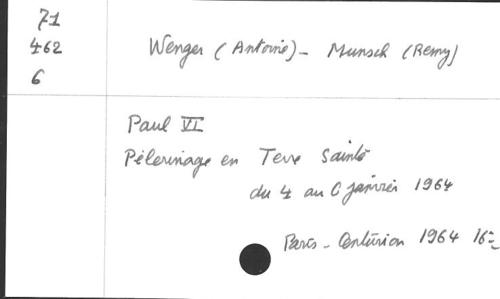 71
462
6
Wenger (Antoine) - Munsch (Remy)
Paul VI
Pèlerinage en Terre Sainte
du 4 au 6 janvier 1964
Paris - Centurion 1964 16°